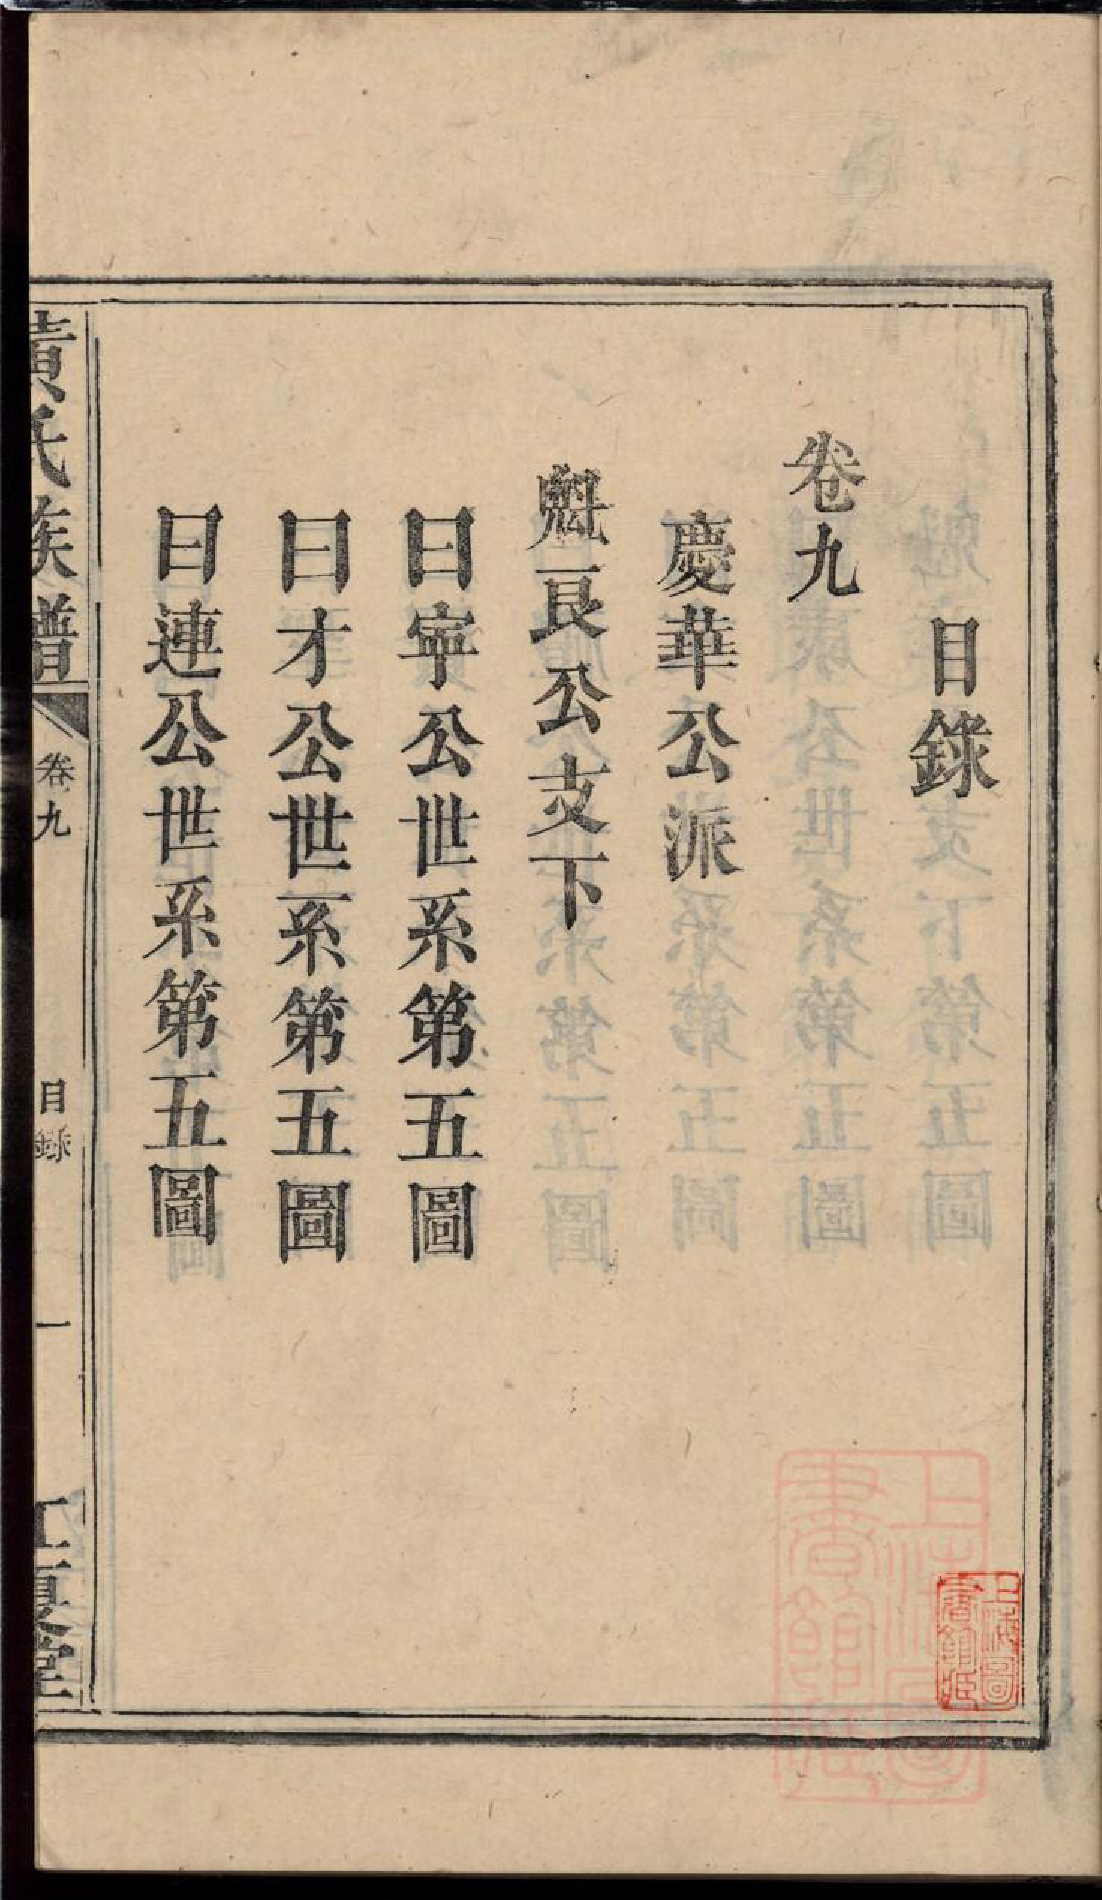 目錄
卷九
慶華公派
魁良公支下
曰寜公世系第五圖
曰才公世系第五圖
曰連公世系第五圖
黃氏族譜
卷九
目錄
一
江夏堂
上海圖書館藏